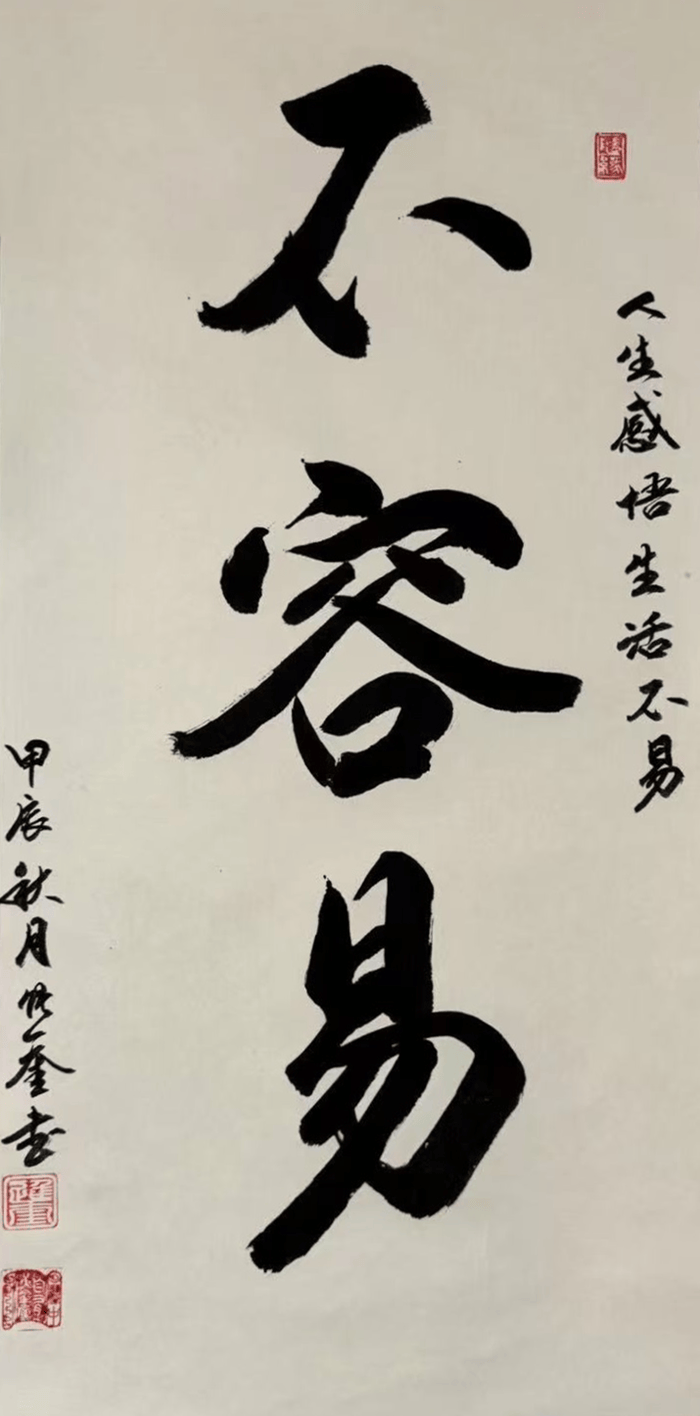 人生感悟生活不易
不容易
甲辰秋月 奎书